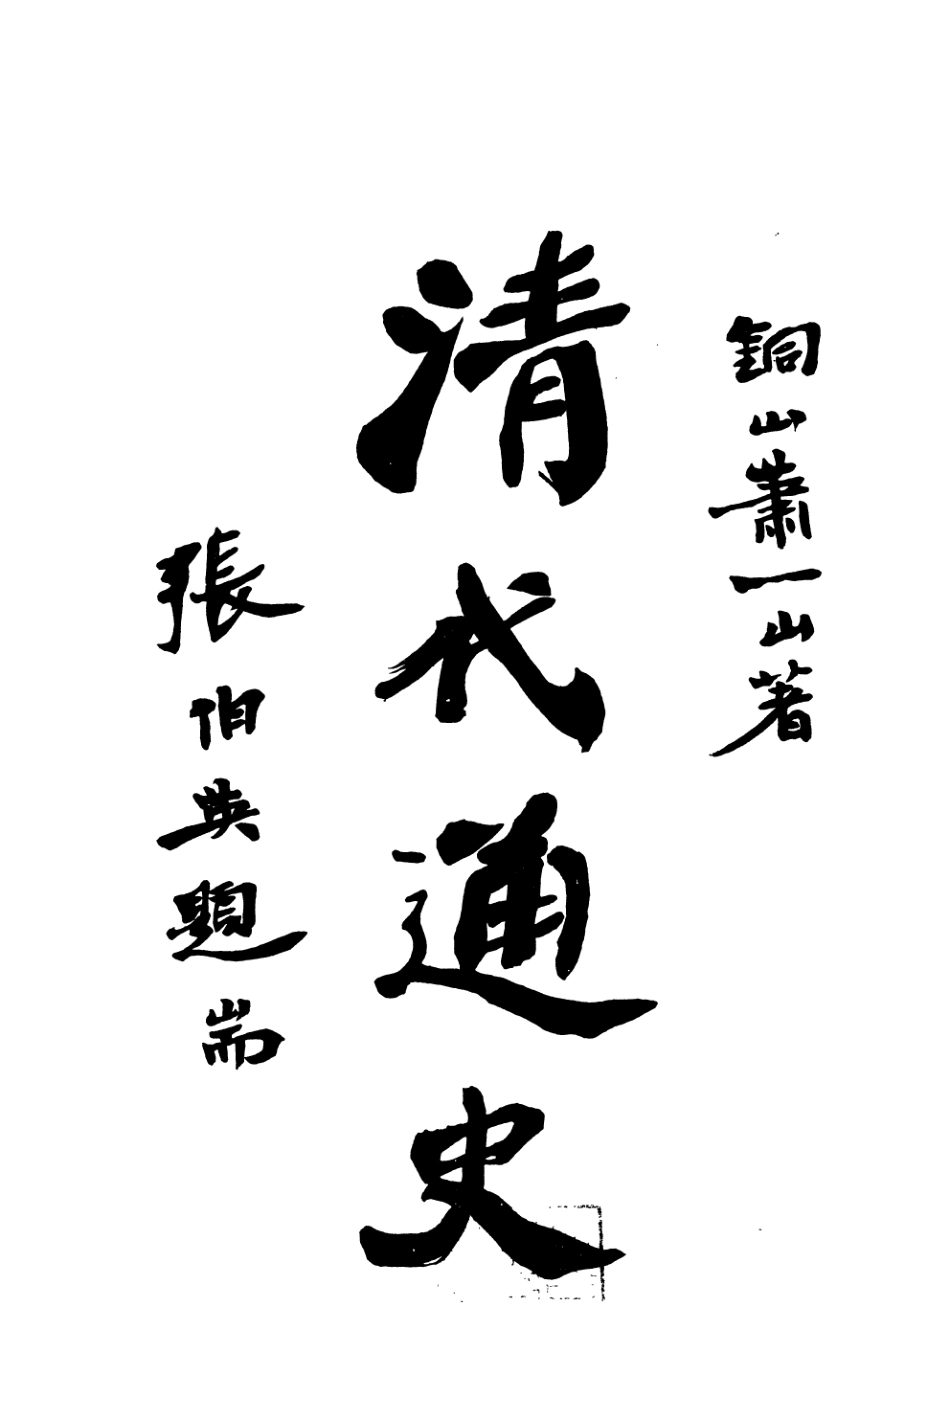 銅山蕭一山著
清代通史
張伯英題耑